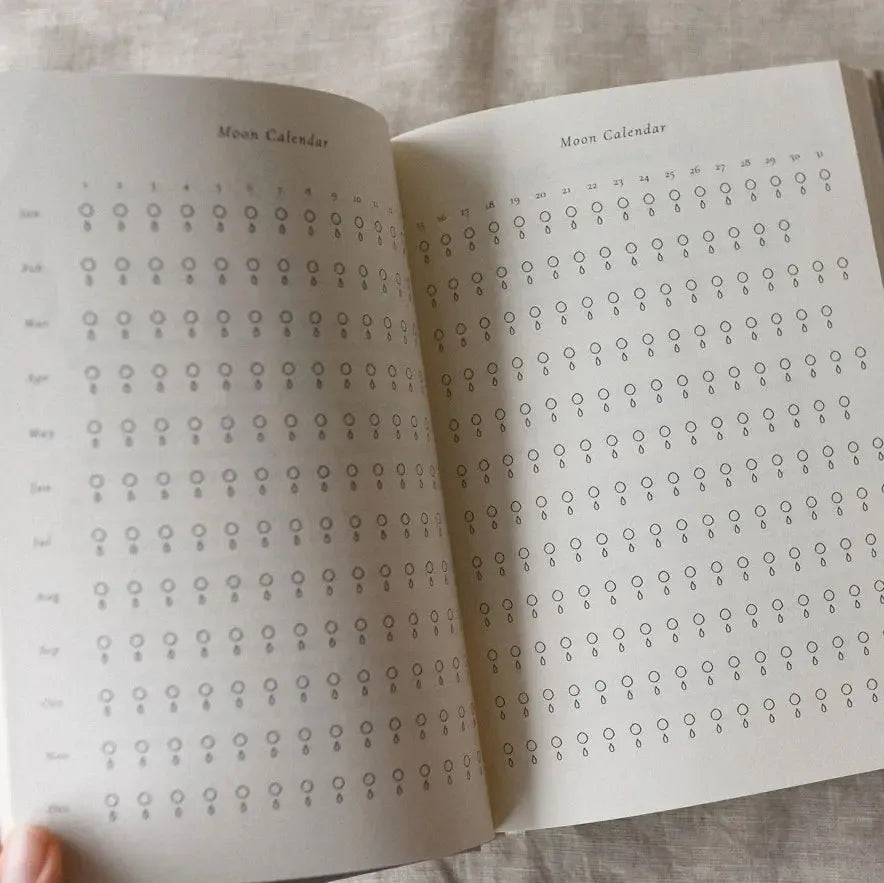 Moon Calendar
1 2 3 4 5 6 7 8 9 10 11 12
Jan
Feb
Mar
Apr
May
Jun
Jul
Aug
Sep
Oct
Nov
Dec
Moon Calendar
15 16 17 18 19 20 21 22 23 24 25 26 27 28 29 30 31